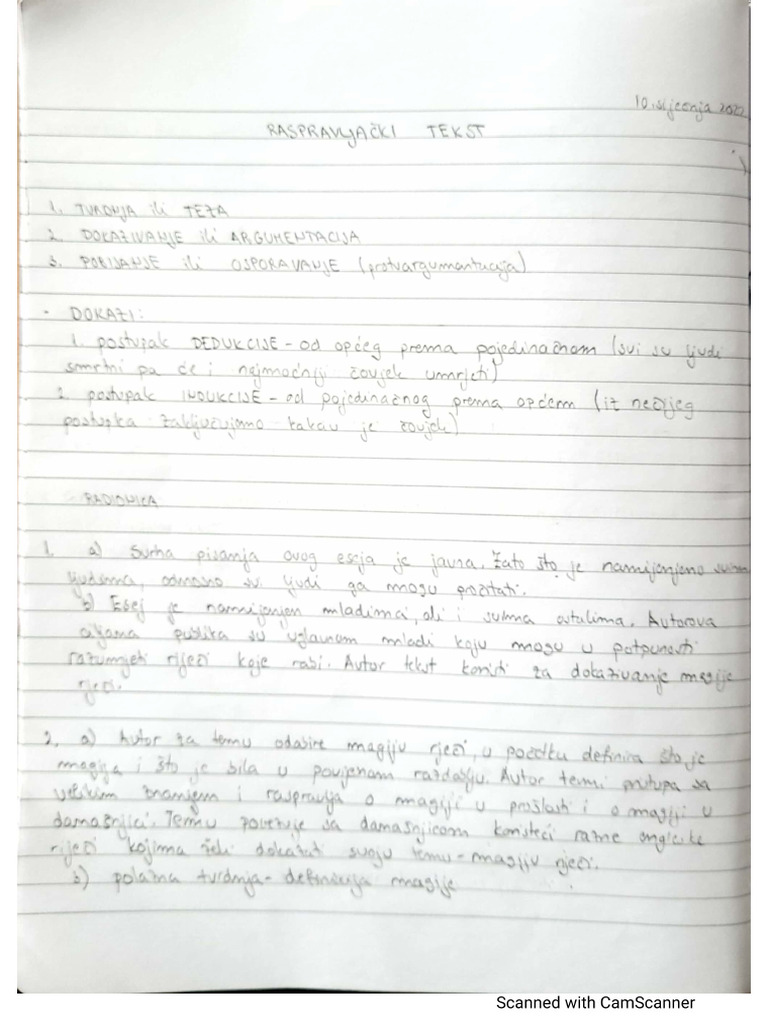 10. siječnja 2022
RASPRAVLJAČKI TEKST
1. TVRDNJA ili TEZA
2. DOKAZIVANJE ili ARGUMENTACIJA
3. POBIJANJE ili OSPORAVANJE (protuargumentacija)
- DOKAZI:
1. postupak DEDUKCIJE - od općeg prema pojedinačnom (svi su ljudi
smrtni pa će i najmoćniji čovjek umrijeti)
2. postupak INDUKCIJE - od pojedinačnog prema općem (iz nečijeg
postupka zaključujemo kakav je čovjek)
RADIONICA
1. a) Svrha pisanja ovog eseja je javna. Zato što je namijenjeno svim
ljudima, odnosno svi ljudi ga mogu pročitati.
b) Esej je namijenjen mladima, ali i svima ostalima. Autorova
ciljana publika su uglavnom mladi koju mogu u potpunosti
razumjeti riječi koje rabi. Autor tekst koristi za dokazivanje magije
rječi.
2. a) Autor za temu odabire magiju rječi, u početku definira što je
magija i što je bila u povijesnom razdoblju. Autor temi pristupa sa
velikim znanjem i raspravlja o magiji u prošlosti i o magiji u
današnjici. Temu povezuje sa današnjicom koristeći razne engleske
riječi kojima želi dokazati svoju temu - magiju rječi.
b) polazna tvrdnja - definicija magije
Scanned with CamScanner